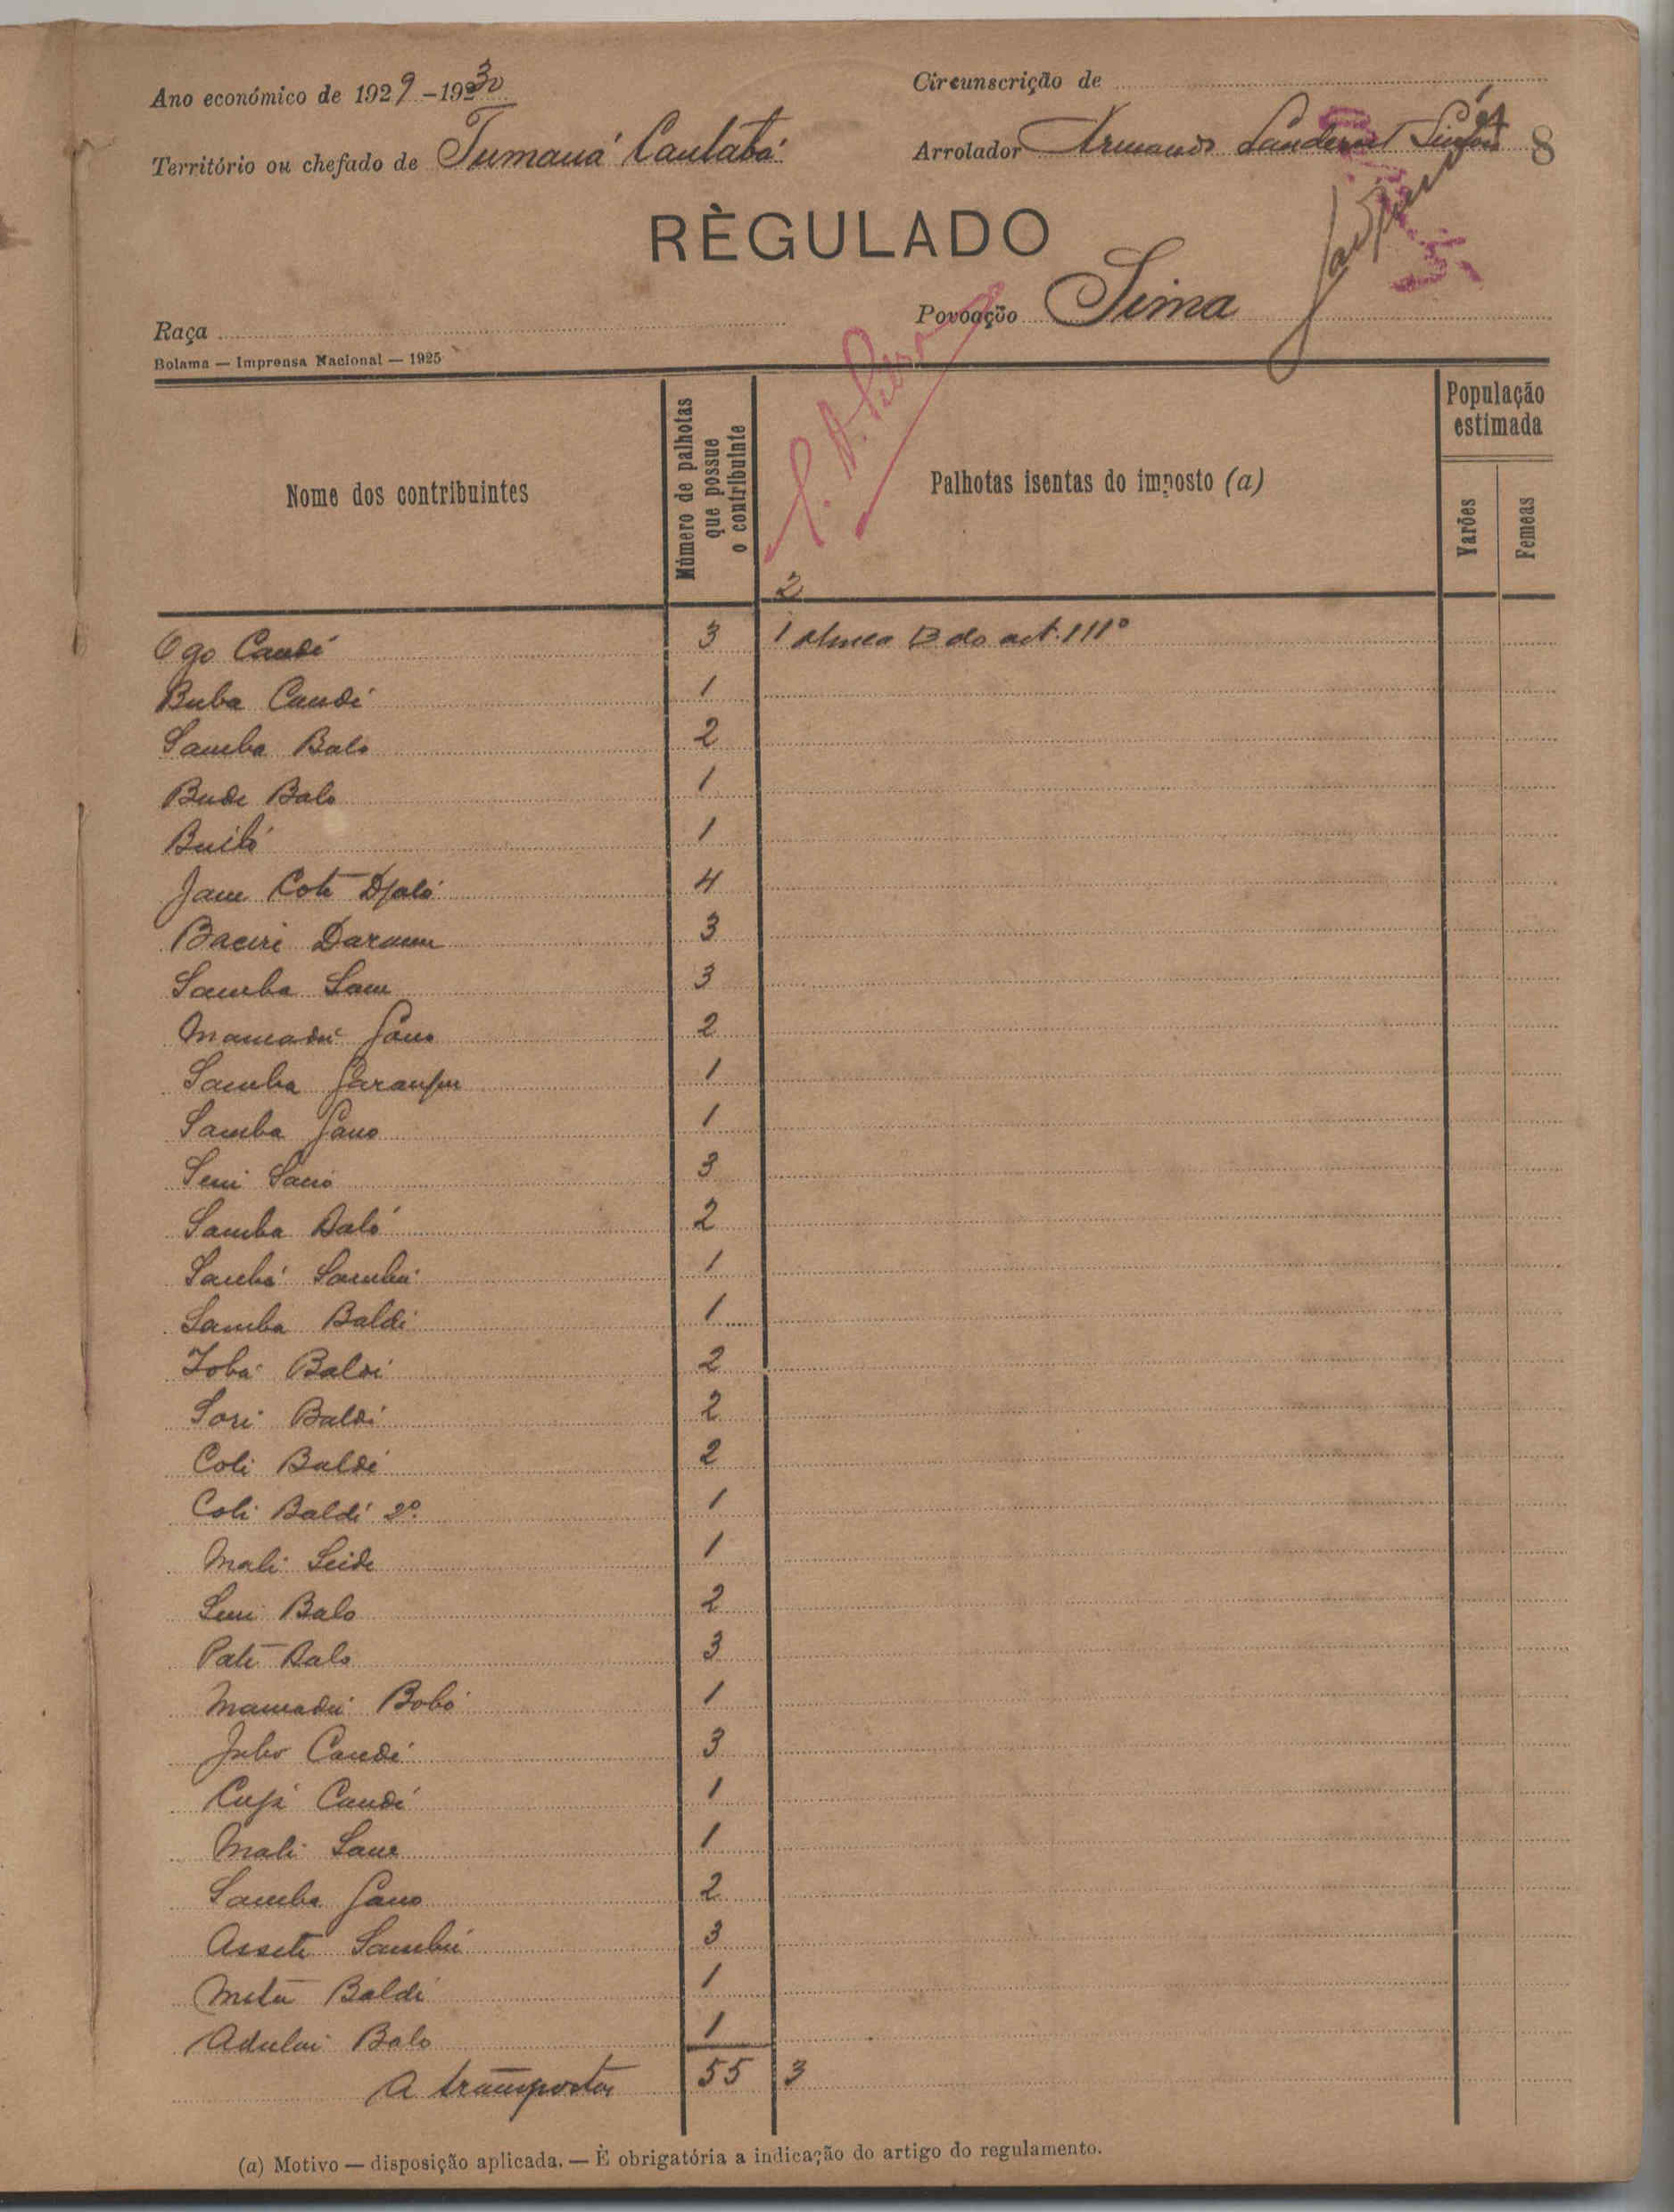 Ano económico de 1929-1930
Circunscrição de
Território ou chefado de Tumaná Cantabá
Arrolador Armando
8
RÈGULADO
Raça
Povoação Sima
Bolama — Imprensa Nacional — 1925
Nome dos contribuintes
Número de palhotas que possue o contribuinte
Palhotas isentas do imposto (a)
População estimada
Varões
Femeas
2
Ogo Candé 3 1 alinea B do art. 111º
Buba Candé 1
Samba Balo 2
Bude Balo 1
1
Jam Cote Djaló 4
Baciri 3
Samba Sam 3
Mamadú Gano 2
Samba 1
Samba Gano 1
Seni Sano 3
Samba Baló 2
Sambú 1
Samba Baldé 1
Iobá Baldé 2
Sori Baldé 2
Coli Baldé 2
Coli Baldé 2º 1
Mali Seide 1
Seni Balo 2
Paté Balo 3
Mamadú Bobó 1
Candé 3
Candé 1
Mali Sane 1
Samba Gano 2
Sambú 3
Baldé 1
Adulai Balo 1
A transportar 55 3
(a) Motivo — disposição aplicada. — È obrigatória a indicação do artigo do regulamento.